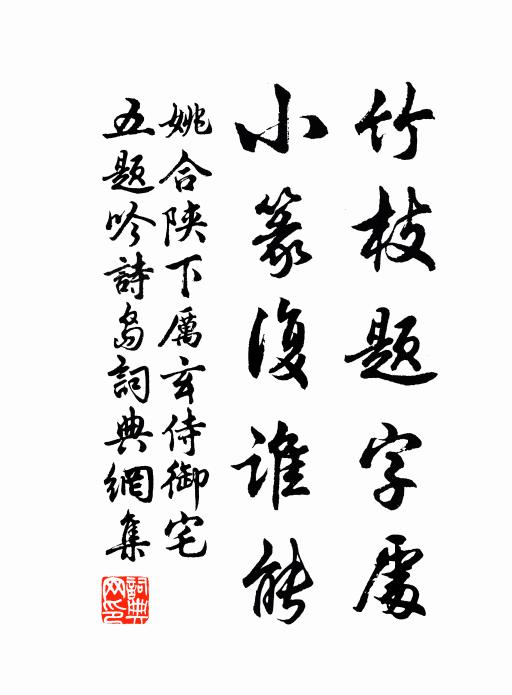 竹枝题字處
小篆復誰能
姚合陕下厲玄侍御宅
五题吟詩島詞典網集
詞典網印